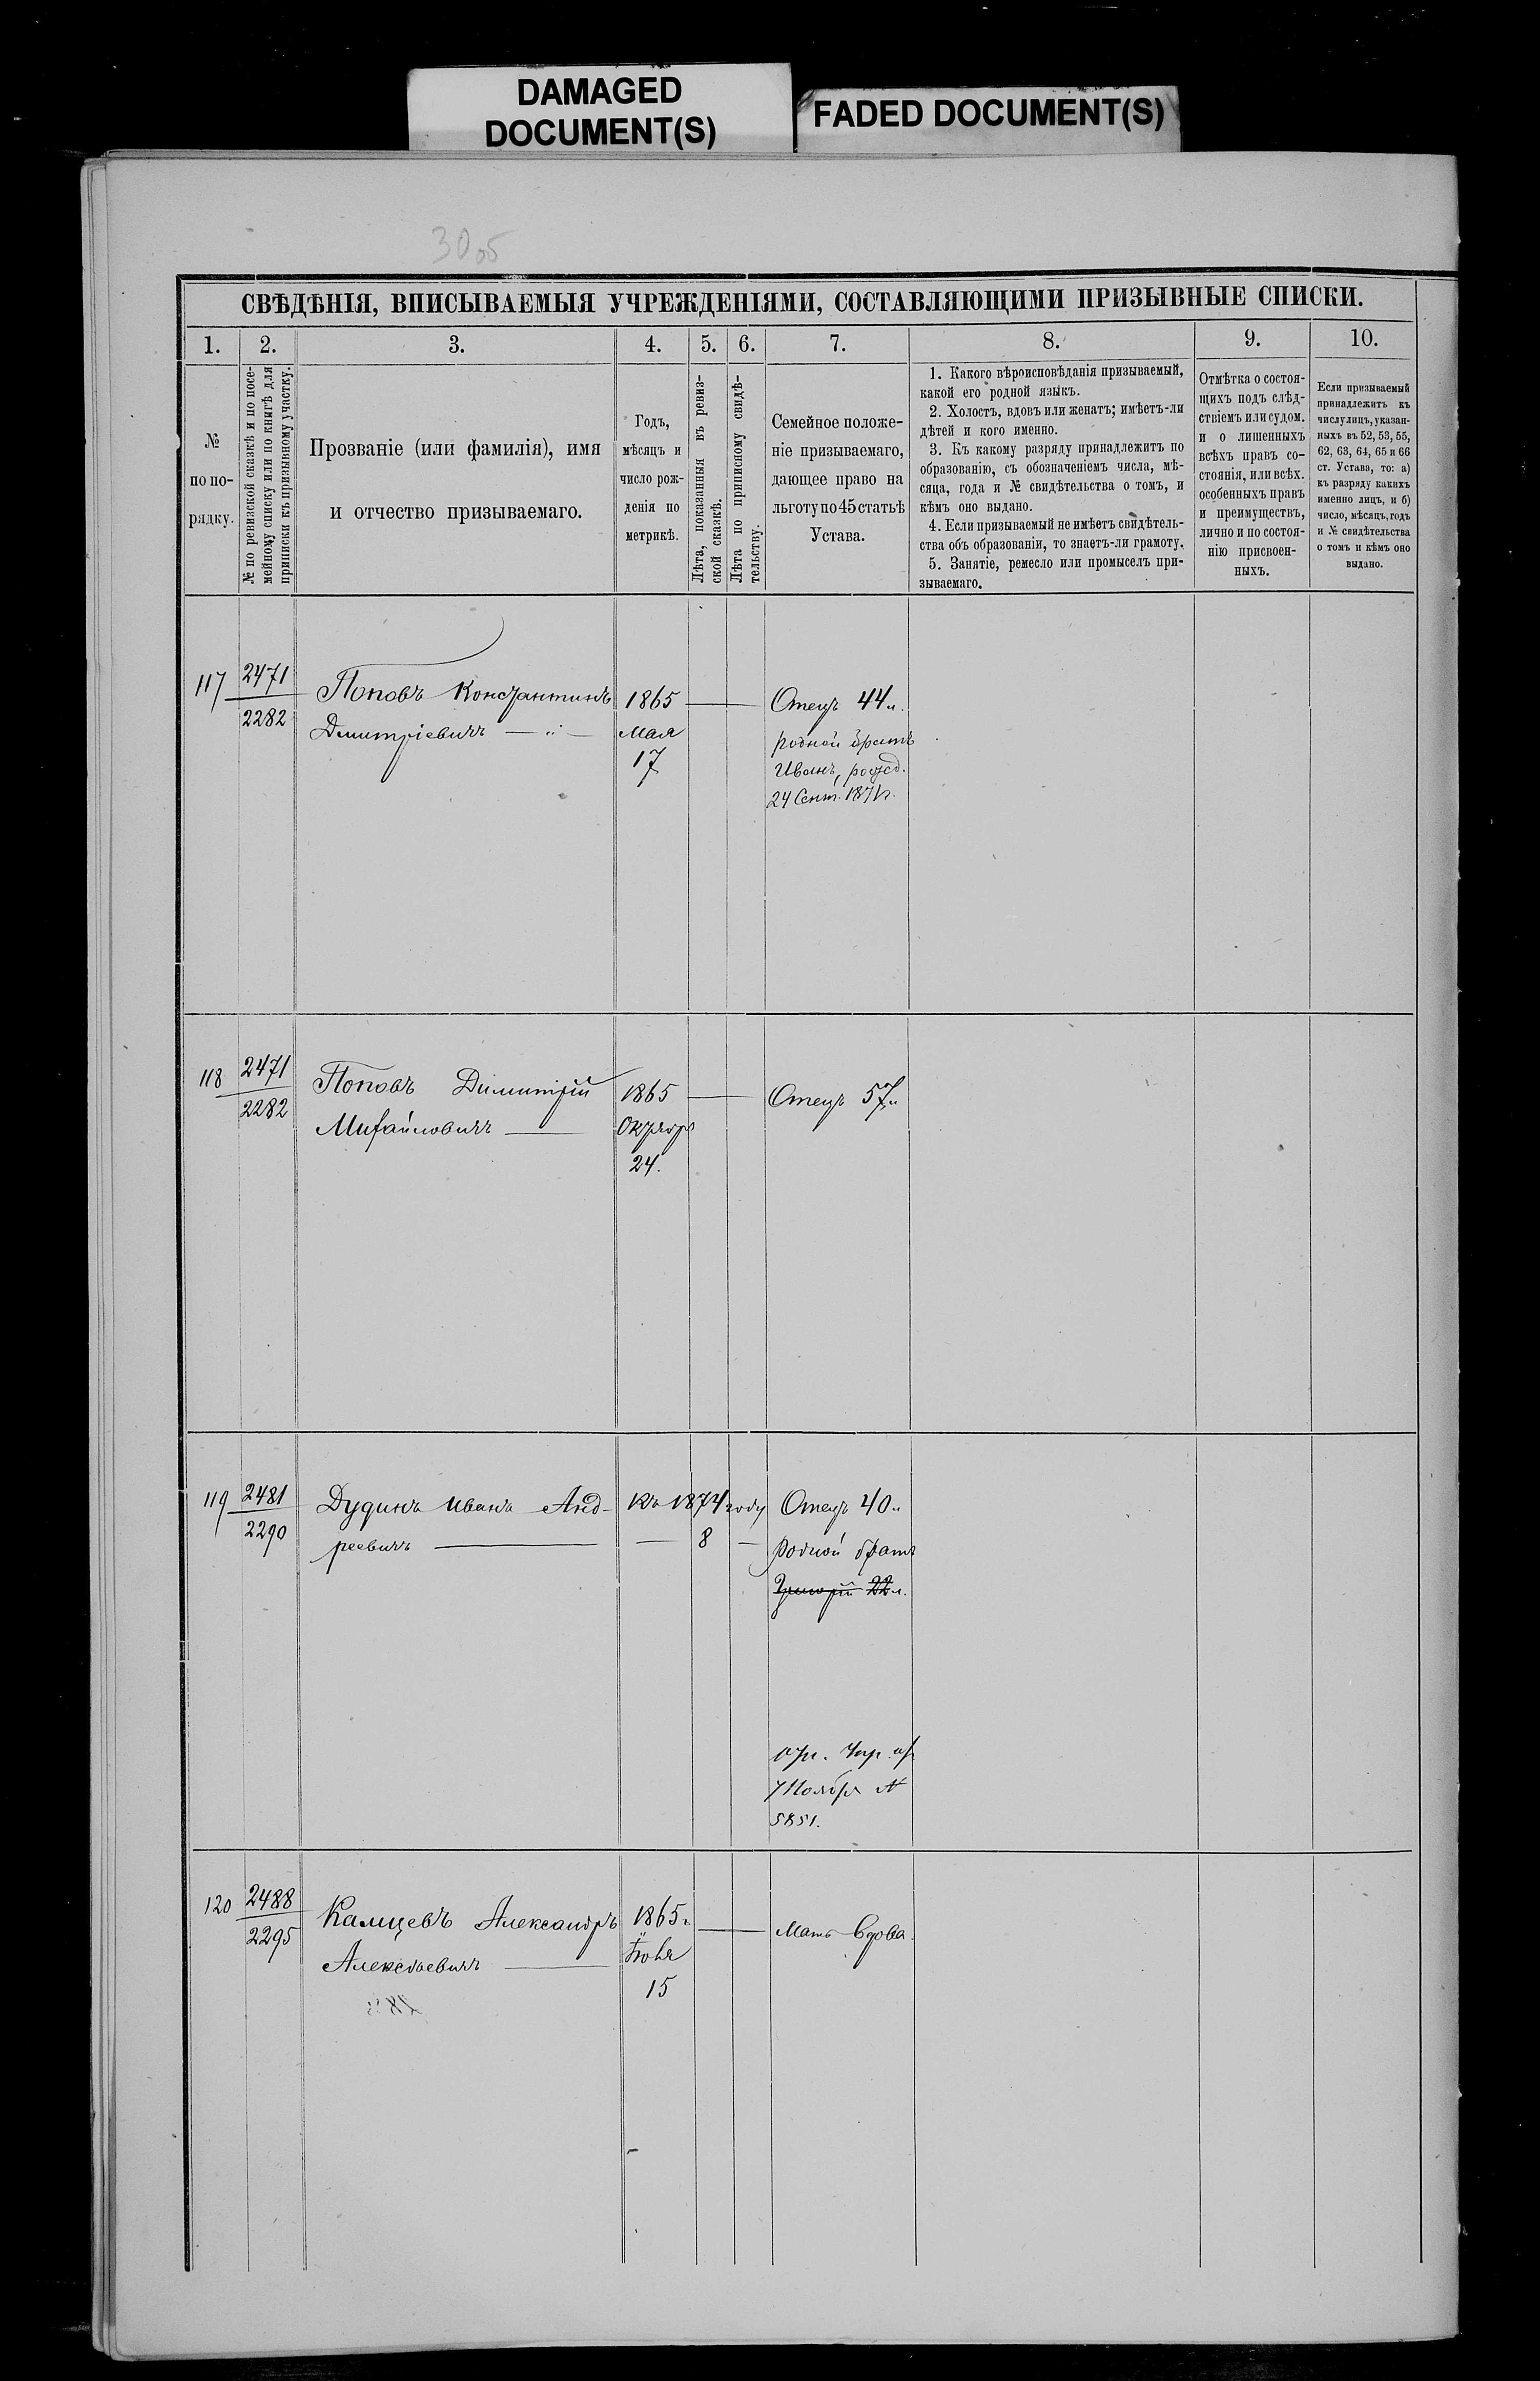 DAMAGED
DOCUMENT(S)
FADED DOCUMENT(S)
30об
СВѢДѢНІЯ, ВПИСЫВАЕМЫЯ УЧРЕЖДЕНІЯМИ, СОСТАВЛЯЮЩИМИ ПРИЗЫВНЫЕ СПИСКИ.
1. 2. 3. 4. 5. 6. 7. 8. 9. 10.
№
по по-
рядку.
№ по ревизской сказкѣ и по посе-
мейному списку или по книгѣ для
приписки къ призывному участку.
Прозваніе (или фамилія), имя
и отчество призываемаго.
Годъ,
мѣсяцъ и
число рож-
денія по
метрикѣ.
Лѣта, показанныя въ ревиз-
ской сказкѣ.
Лѣта по приписному свидѣ-
тельству.
Семейное положе-
ніе призываемаго,
дающее право на
льготу по 45 статьѣ
Устава.
1. Какого вѣроисповѣданія призываемый,
какой его родной языкъ.
2. Холостъ, вдовъ или женатъ; имѣетъ-ли
дѣтей и кого именно.
3. Къ какому разряду принадлежитъ по
образованію, съ обозначеніемъ числа, мѣ-
сяца, года и № свидѣтельства о томъ, и
кѣмъ оно выдано.
4. Если призываемый не имѣетъ свидѣтель-
ства объ образованіи, то знаетъ-ли грамоту.
5. Занятіе, ремесло или промыселъ при-
зываемаго.
Отмѣтка о состоя-
щихъ подъ слѣд-
ствіемъ или судом.
и о лишенныхъ
всѣхъ правъ со-
стоянія, или всѣх.
особенныхъ правъ
и преимуществъ,
лично и по состоя-
нію присвоен-
ныхъ.
Если призываемый
принадлежитъ къ
числу лицъ, указан-
ныхъ въ 52, 53, 55,
62, 63, 64, 65 и 66
ст. Устава, то: а)
къ разряду какихъ
именно лицъ, и б)
число, мѣсяцъ, годъ
и № свидѣтельства
о томъ и кѣмъ оно
выдано.
117
2471
2282
Поповъ Константинъ
Дмитріевичъ — „ —
1865
Мая
17
Отецъ 44 л.
родной братъ
Иванъ, рожд.
24 Сент. 1871 г.
118
2471
2282
Поповъ Димитрій
Михайловичъ —
1865
Октябр
24.
Отецъ 57 л
119
2481
2290
Дудинъ Иванъ Анд-
реевичъ —
Къ 1874 году
— 8 —
Отецъ 40 л
родной братъ
Григорій 22 л.
7 Ноября №
5851.
120
2488
2295
Калицевъ Александръ
Алексѣевичъ —
1865 г
Іюня
15
Мать вдова.